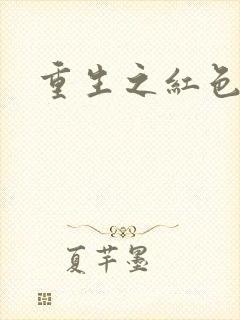 重生之紅色
夏芊墨